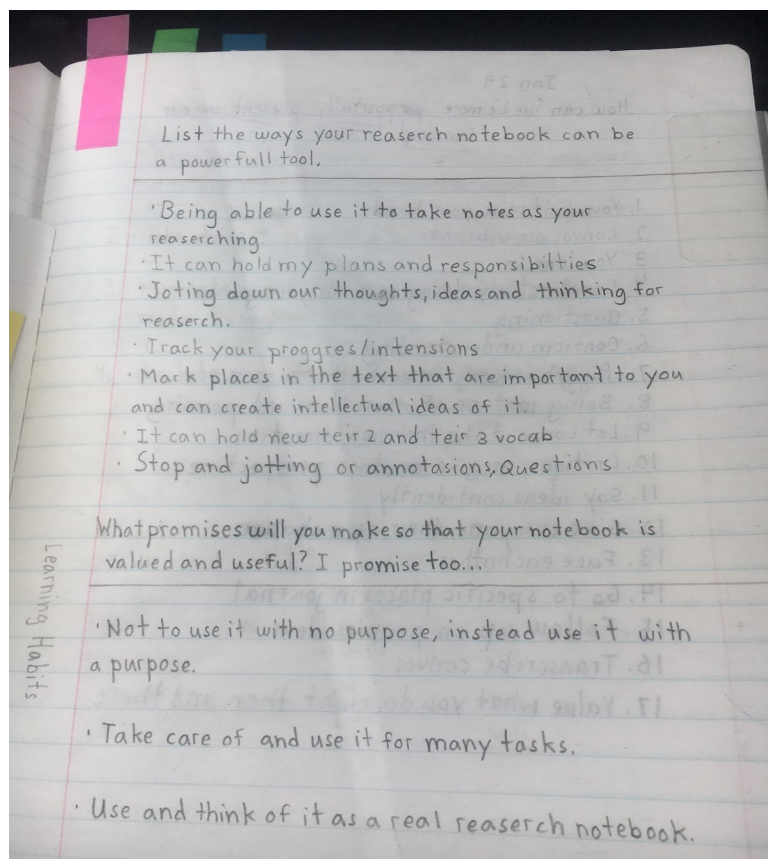 List the ways your reaserch notebook can be
a powerfull tool.
·Being able to use it to take notes as your
reaserching.
·It can hold my plans and responsibilties
·Joting down our thoughts, ideas and thinking for
reaserch.
·Track your proggres/intensions
·Mark places in the text that are important to you
and can create intellectual ideas of it.
·It can hold new teir 2 and teir 3 vocab
·Stop and jotting or annotasions, Questions
What promises will you make so that your notebook is
valued and useful? I promise too...
·Not to use it with no purpose, instead use it with
a purpose.
·Take care of and use it for many tasks.
·Use and think of it as a real reaserch notebook.
Learning Habits